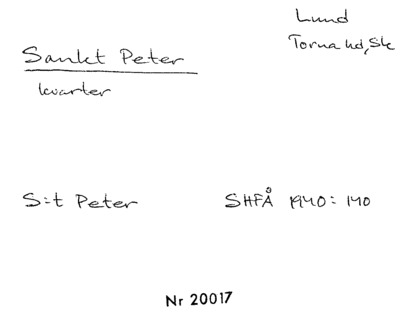 Lund
Torna hd, Sk
Sankt Peter
kvarter
S:t Peter SHFÅ 1940: 140
Nr 20017